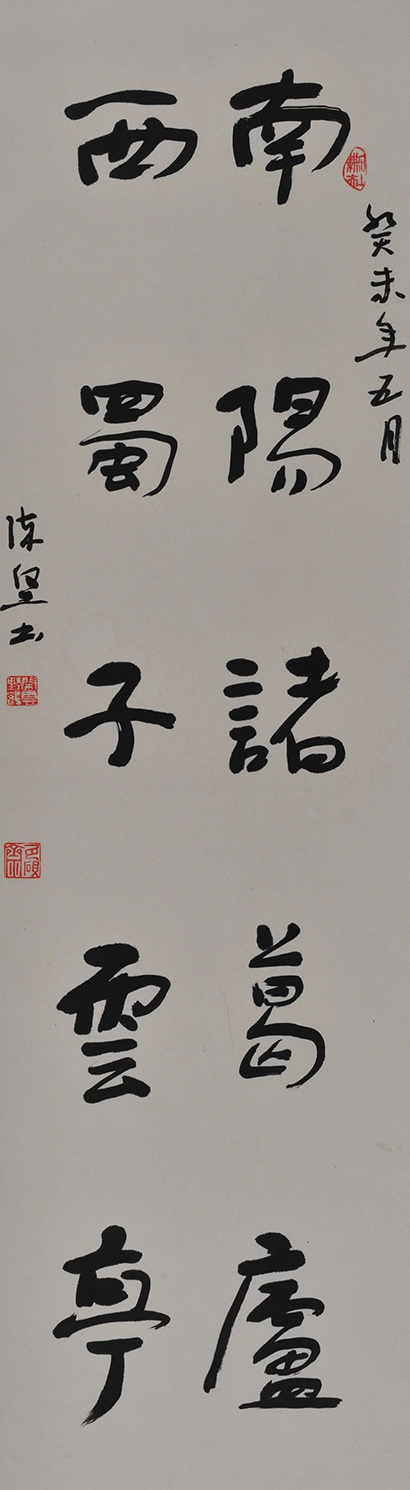 癸未年五月
南陽諸葛廬
西蜀子雲亭
陈坚书